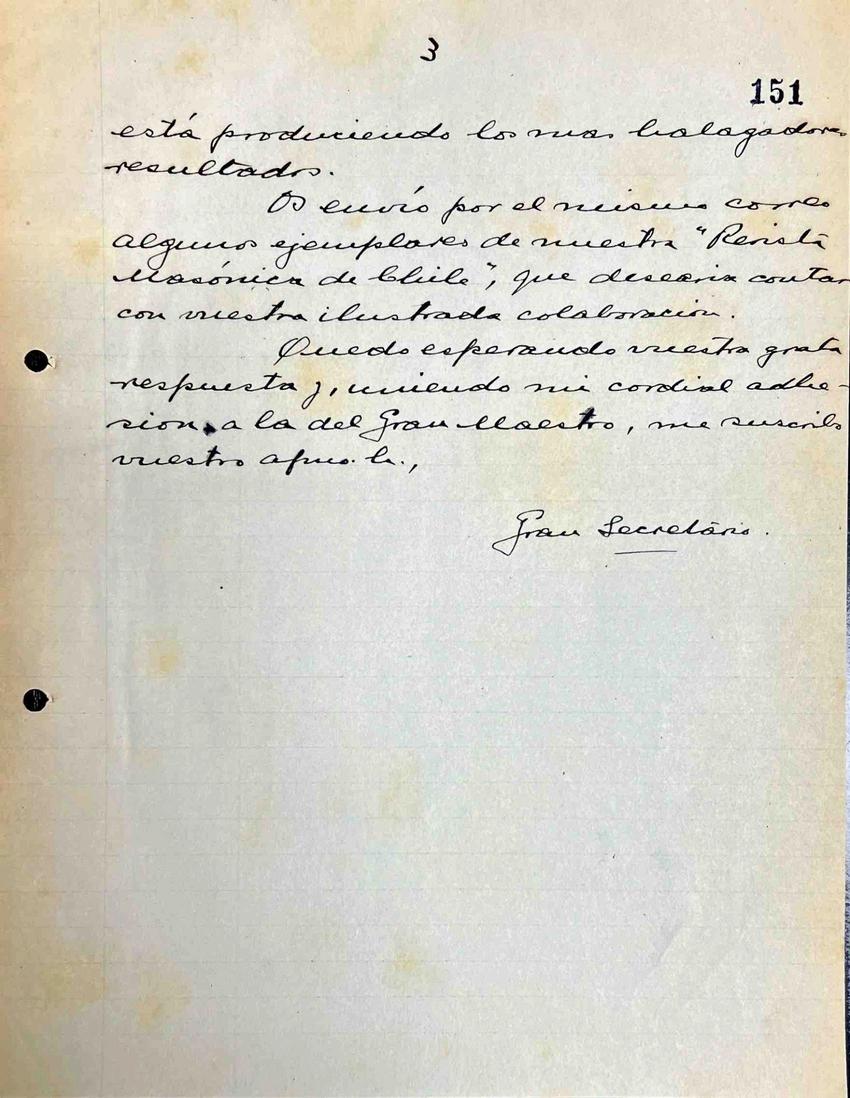 3
151
está produciendo los mas halagadores
resultados.
Os envío por el mismo correo
algunos ejemplares de nuestra "Revista
Masónica de Chile", que desearia contar
con vuestra ilustrada colaboracion.
Quedo esperando vuestra grata
respuesta y, uniendo mi cordial adhe-
sion, a la del Gran Maestro, me suscribo
vuestro afmo. h.,
Gran Secretário.